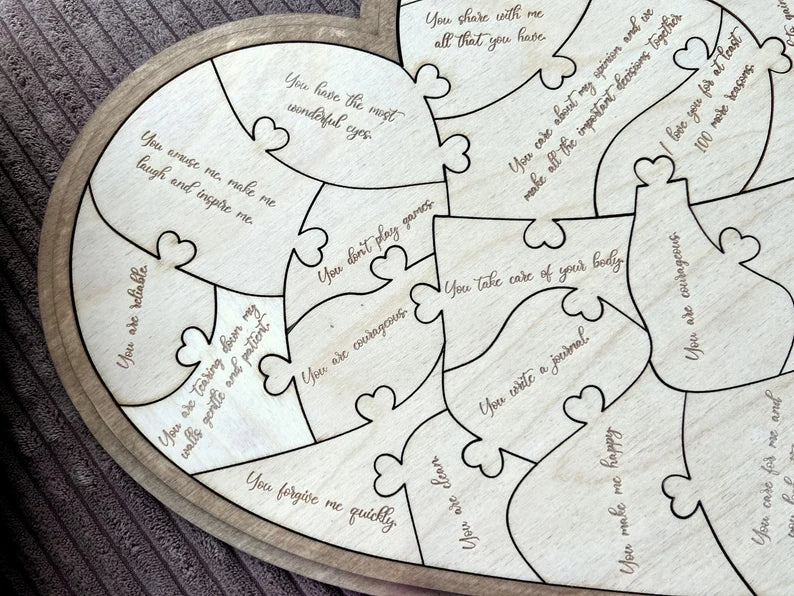 You share with me
all that you have.
You care about my opinion and we
make all the important decisions together.
I love you for at least
100 more reasons.
You have the most
wonderful eyes.
You amuse me, make me
laugh and inspire me.
You don't play games.
You are reliable.
You are tearing down my
walls gentle and patient.
You are courageous.
You take care of your body.
You are courageous.
You write a journal.
You forgive me quickly.
You are clean
You make me happy
You care for me and